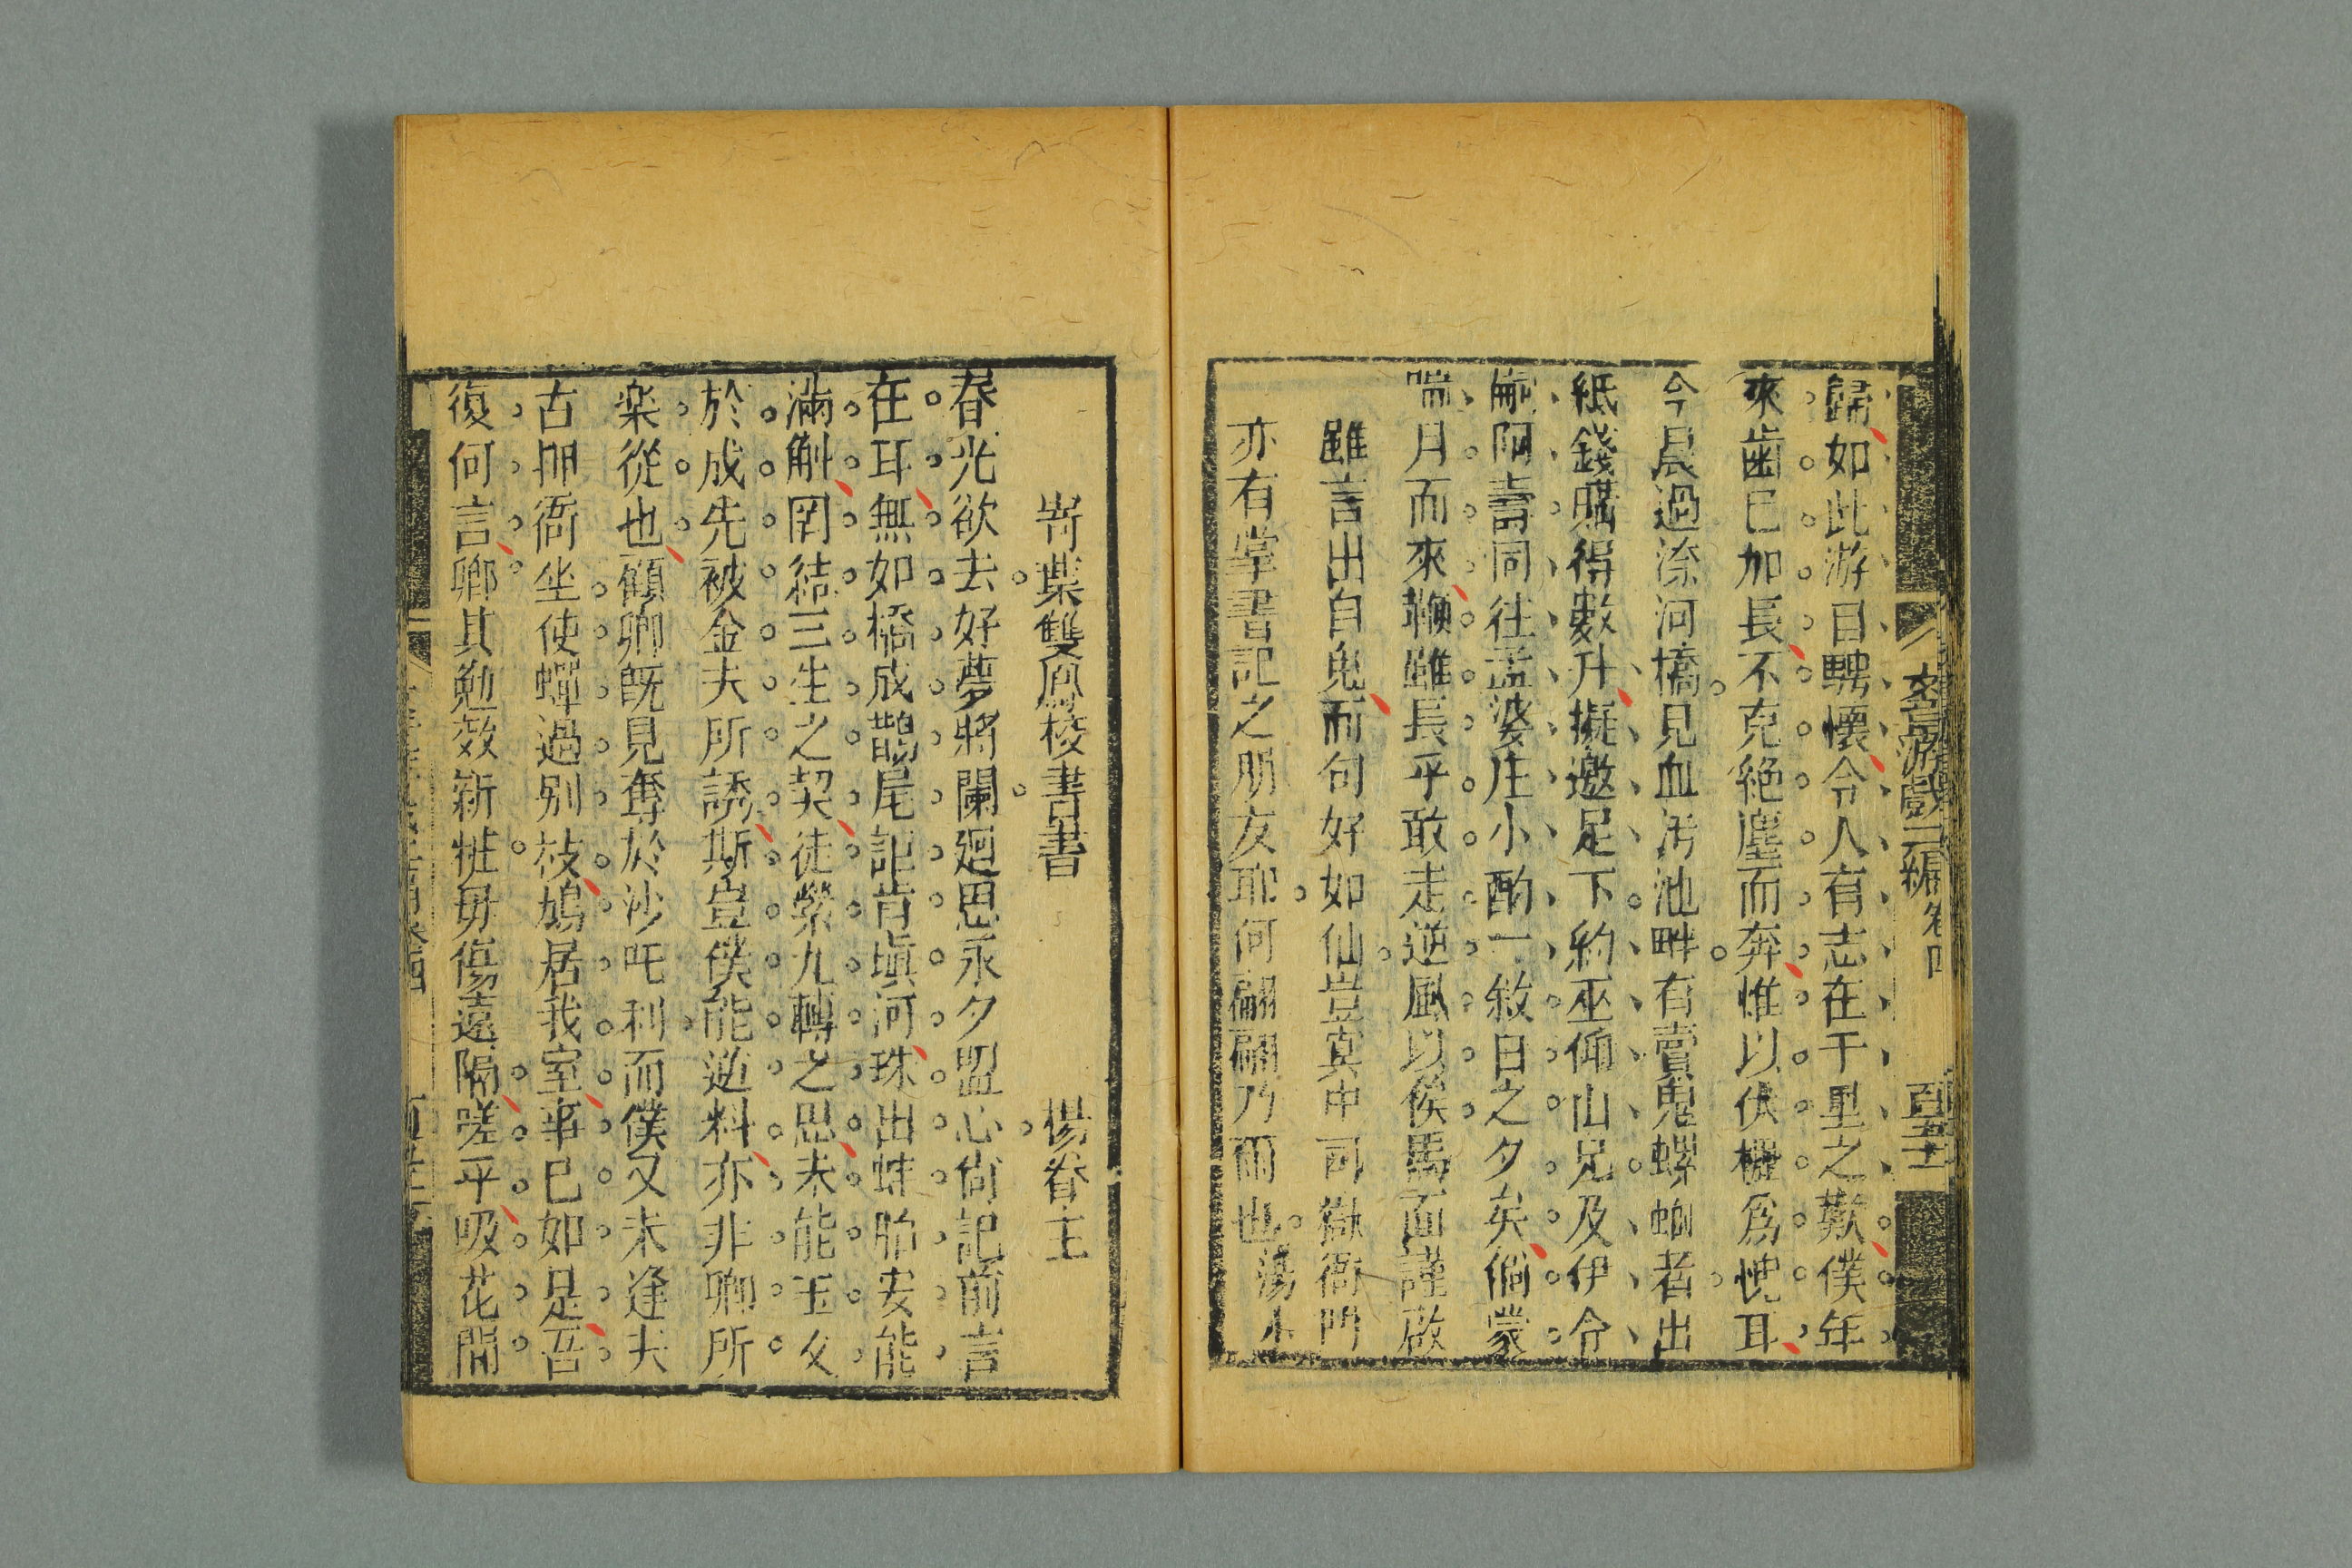 歸如此游目騁懷令人有志在千里之歎僕年
來齒已加長不克絕塵而奔惟以伏櫪爲愧耳
今晨過溙河橋見血汚池畔有賣鬼螺螄者出
紙錢購得數升擬邀足下約巫仰山兄及伊令
嗣阿壽同往孟婆庄小酌一敘日之夕矣倘蒙
喘月而來鞭雖長乎敢走逆風以俟馬面謹啟
雖言出自鬼而句好如仙豈冥中司獄衙門
亦有掌書記之朋友耶何翩翩乃爾也
岢葉雙鳳校書書
楊春主
春光欲去好夢將闌廻思永夕盟心尙記前言
在耳無如橋成鵲尾詎肯塡河珠出蚌胎安能
滿斛罔結三生之契徒縈九轉之思未能玉女
於成先被金夫所誘斯豈僕能逆料亦非卿所
樂從也顧卿旣見奪於沙吒利而僕又未逢夫
古押衙坐使蟬過別枝鳩居我室事已如是吾
復何言卿其勉效新粧毋傷遠隔嗟乎吸花間